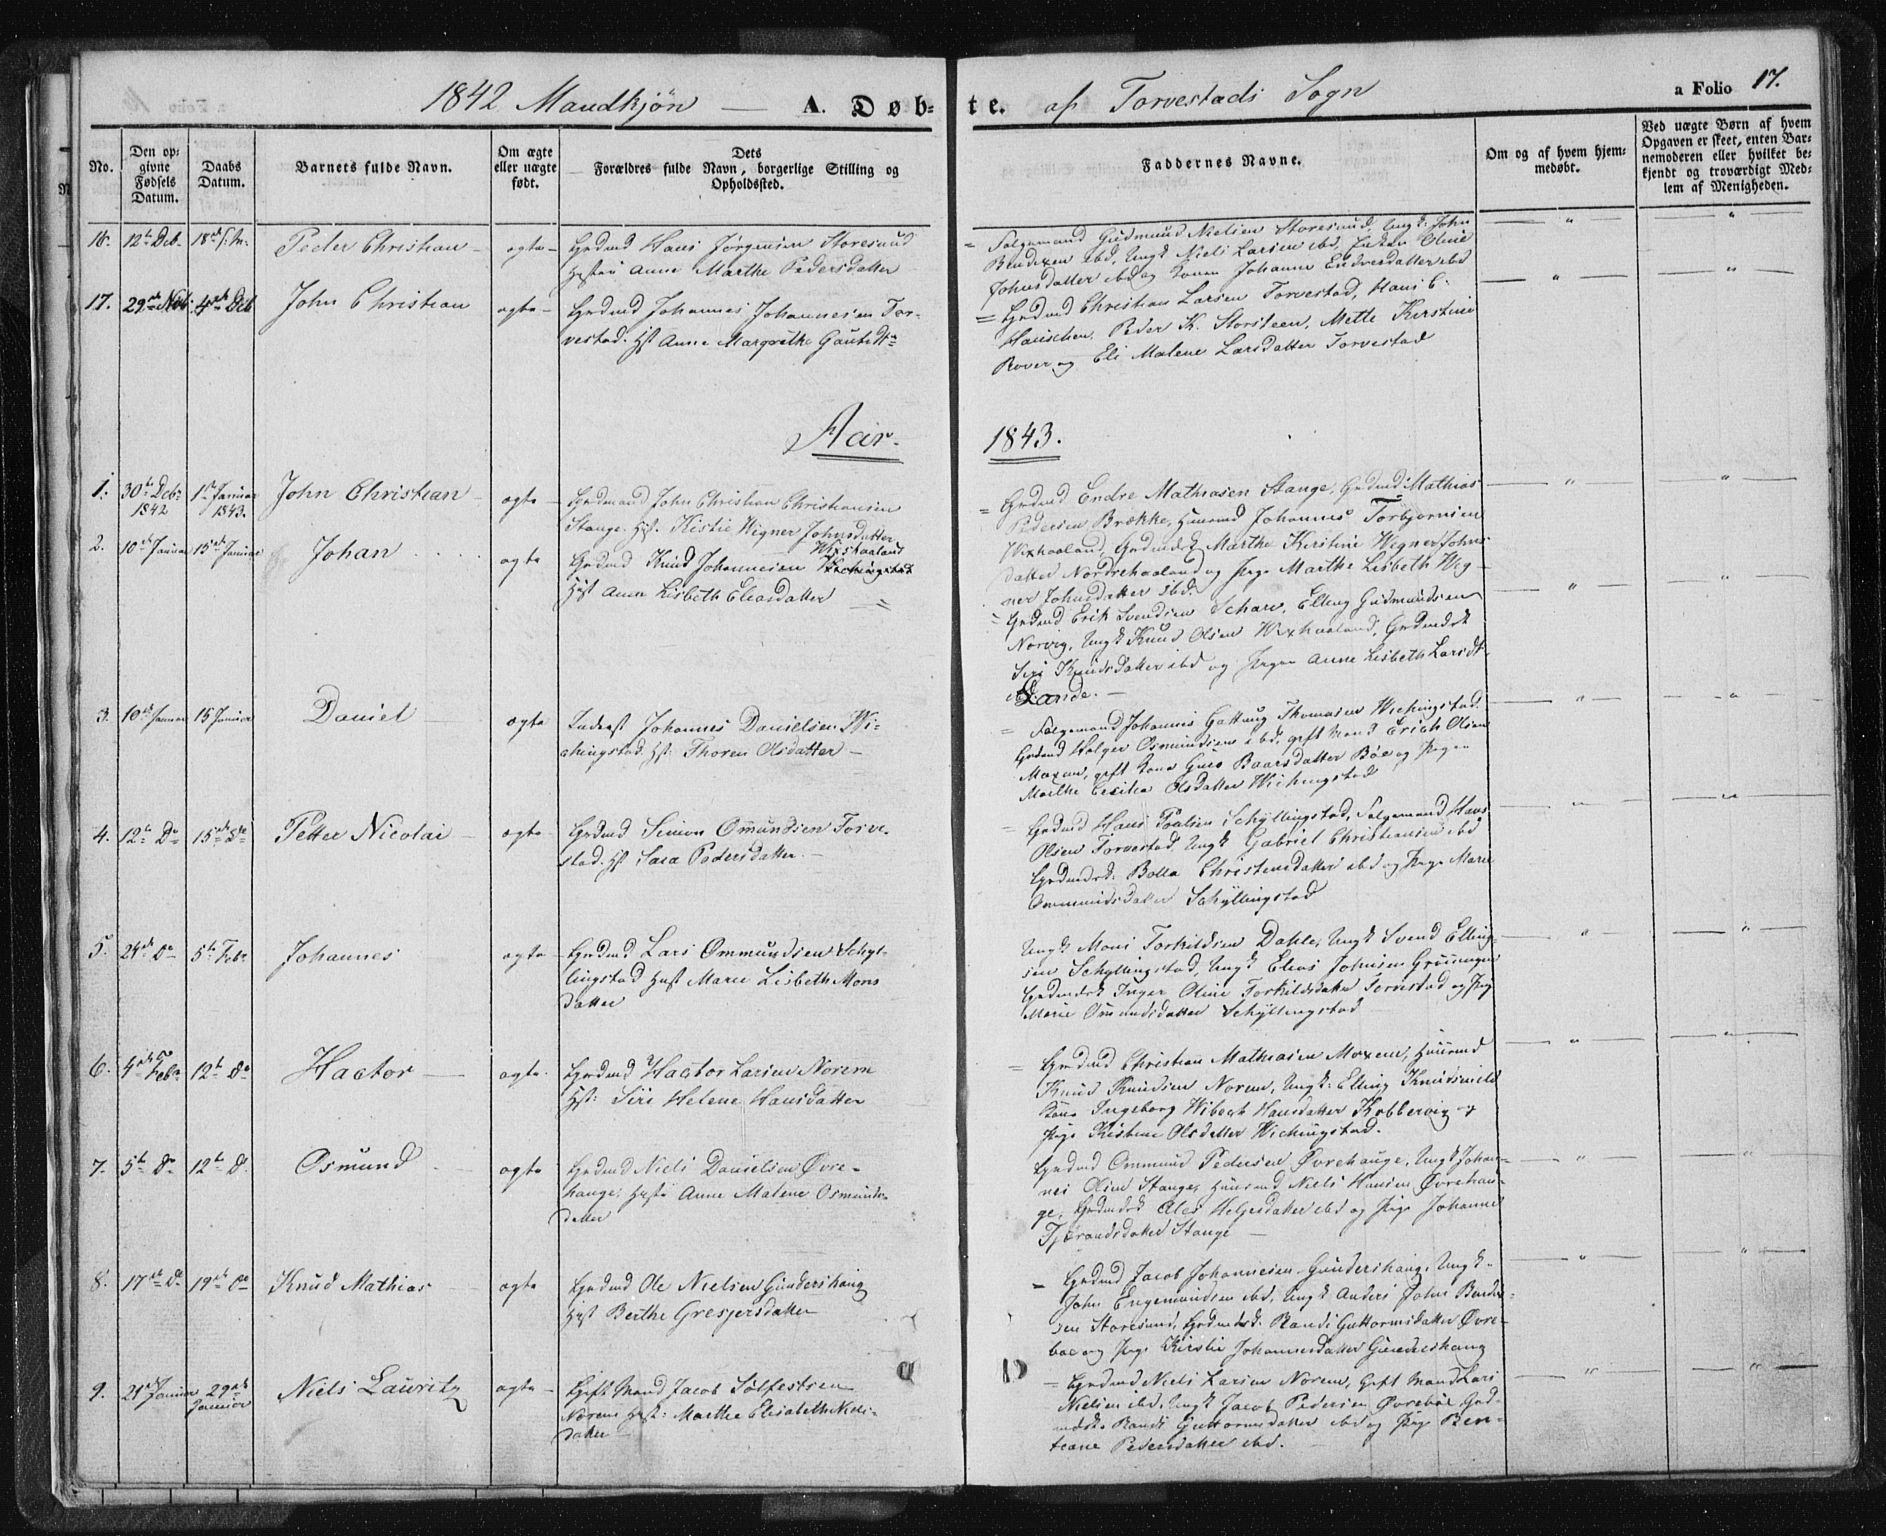 1842 Mandkjön — A. Døb-
te. af Torvestads Sogn
a Folio 17.
No.
Den op-
givne
Fødsels
Datum.
Daabs
Datum.
Barnets fulde Navn.
Om ægte
eller uægte
født.
Dets
Forældres fulde Navn, borgerlige Stilling og
Opholdssted.
Faddernes Navne.
Om og af hvem hjem-
medøbt.
Ved uægte Børn af hvem
Opgaven er skeet, enten Bar-
nemoderen eller hvilket be-
kjendt og troværdigt Med-
lem af Menigheden.
16. 12te Deb. 18de
Peder Christian
ægte
Grdmd Hans Jörgensen Storesund
Anne Marthe Pedersdatter
Selgemand Gudmund Nielsen Storesund, Ungk: John
Bendixen ibd, Ungk Niels Larsen ibd, Enken Oline
Johnsdatter ibd og Konen Johanne Endresdatter ibd
17. 29de Nob. 4de Deb
John Christian
ægte
Grdmd Johannes Johannesen Tor-
vestad. Hst Anne Margrethe
Grdmd Christian Larsen Torvestad, Hans C.
Peder K. Storsteen, Mette Kirstine
Rover og Eli Malene Larsdatter Torvestad
Aar.
1843.
1. 30te Debr 1842 1ste Januar 1843.
John Christian
ægte
Grdmand John Christian Christiansen
Stange. Hst. Kistie Wigner Johnsdatter
Grdmd Endre Mathiasen Stange, Grdmd Mathias
Pedersen Brække, Huusmd Johannes Torbjørnsen
Wixhaaland, Grdmdsk Marthe Kirstine Wegner Johns
datter Nordrehaaland og Pige Marthe Lisbeth Weg-
ner Johnsdatter ibd.
2. 10de Januar 15de Januar
Johan
ægte
Wixhaaland
Grdmd Knud Johannesen
Hst Anne Lisbeth Eliasdatter
Grdmd Erik Svendsen Schare, Elling Gudmundsen
Norvig, Ungk Knud Olsen Wixhaaland, Grdmdsk
Siri Knudsdatter ibd og Pigen Anne Lisbeth Larsdt.
Lande.
3. 10de Januar 15 Januar
Daniel
ægte
Inderst Johannes Danielsen Wi-
chingstad. Hst: Thoren Olsdatter
Selgemand Johannes Gottung Thomasen Wichingstad.
Grdmd Holger Osmundsen ibd, gift Mand Erich Olsen
Moxem, gift Kone Guro Baarsdatter Böe og Pigen
Marthe Cecilia Olsdatter Wichingstad
4. 12te Do 15de Do
Petter Nicolai
ægte
Grdmd Simon Omundsen Torve-
stad. Hst Sara Pedersdatter.
Grdmd Hans Poulsen Schyllingstad, Selgemand Hans
Olsen Torvestad, Ungk Gabriel Christiansen ibd
Grdmdsk: Bolla Christensdatter ibd og Pige Marie
Ommundsdatter Schyllingstad
5. 24de Do 5te Febr
Johannes
ægte
Grdmd Lars Ommundsen Schyl-
lingstad Hust Marie Lisbeth Mons
datter
Ungk Mons Torkildsen Dahle, Ungk Svend Elling-
sen Schyllingstad, Ungk Elias Johnsen
Grdmdsk Inger Oline Torkildsdatter Torvestad og Pig
Marie Omundsdatter Schyllingstad
6. 4de Febr 12te Do
Hactor
ægte
Grdmd Hactor Larsen Norem
Hst: Siri Helene Hansdatter
Grdmd Christian Mathiasen Moxem, Huusmd
Knud Knudsen Norem, Ungk: Elling
Kone Ingeborg Wibech Hansdatter Kobbervig og
Pige Kistine Olsdatter Wichingstad.
7. 5te Do 12te D.
Osmund
ægte
Grdmd Niels Danielsen Øvre-
hauge, Anne Malene Osmunds-
datter
Grdmd Ommund Pedersen Øvrehauge, Ungk Johan-
nes Olsen Stange, Huusmd Niels Hansen Øvrehau-
ge, Grdmdsk Helgesdatter ibd og Pige Johanne
Stange
8. 17de Do 19de Do
Knud Mathias
ægte
Grdmd Ole Nielsen Gundershaug
Hst Berthe Gresjersdatter
Grdmd Jacob Johannesen Gundershaug, Ungk.
John Engemundsen ibd, Ungk Anders John Bendix-
sen Storesund, Grdmdsk. Randi Guttormsdatter Øvre-
boe og Pige Kirstie Johannesdatter Gundershaug
9. 21de Januar 29de Januar
Niels Lauritz
ægte
Gift Mand Jacob Solfestsen
Norem Hst: Marthe Elisabeth Niels-
datter
Grdmd Niels Larsen Norem, Gift Mand Lars
Nielsen ibd, Ungk Jacob Pedersen Øvreböe, Grd-
mdsk Randi Guttormsdatter ibd og Pige Ben-
teane Pedersdatter ibd.